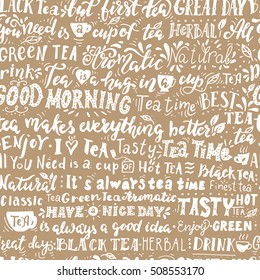 BLACK TEA but first TEA GREAT DAY!
you need is a cup of tea HERBAL All
GREEN TEA Aromatic Natural
drink Tea is a hug in a cup TEA
GOOD MORNING Tea time BEST
tea makes everything better TEA
ENJOY I TEA Tasty Tea Time
All You Need is a CUP OF Hot TEA BLACK TEA
Natural It's always tea time Finest tea
Classic Tea Green Tea Aromatic TASTY HOT TEA
HAVE A NICE DAY
TEA is always a good idea Enjoy GREEN
Great days BLACK TEA HERBAL DRINK
shutterstock
IMAGE ID: 508553170
www.shutterstock.com